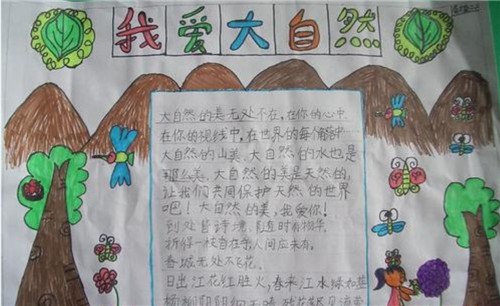 我爱大自然
大自然的美无处不在,在你的心中
在你的视线中,在世界的每个角落中
大自然的山美,大自然的水也是
那么美,大自然的美是天然的,
让我们共同保护天然的世界
吧!大自然的美,我爱你!
到处皆诗境,随时有物华
折得一枝当在手,人间应未有。
春城无处不飞花。
日出江花红胜火,春来江水绿如蓝